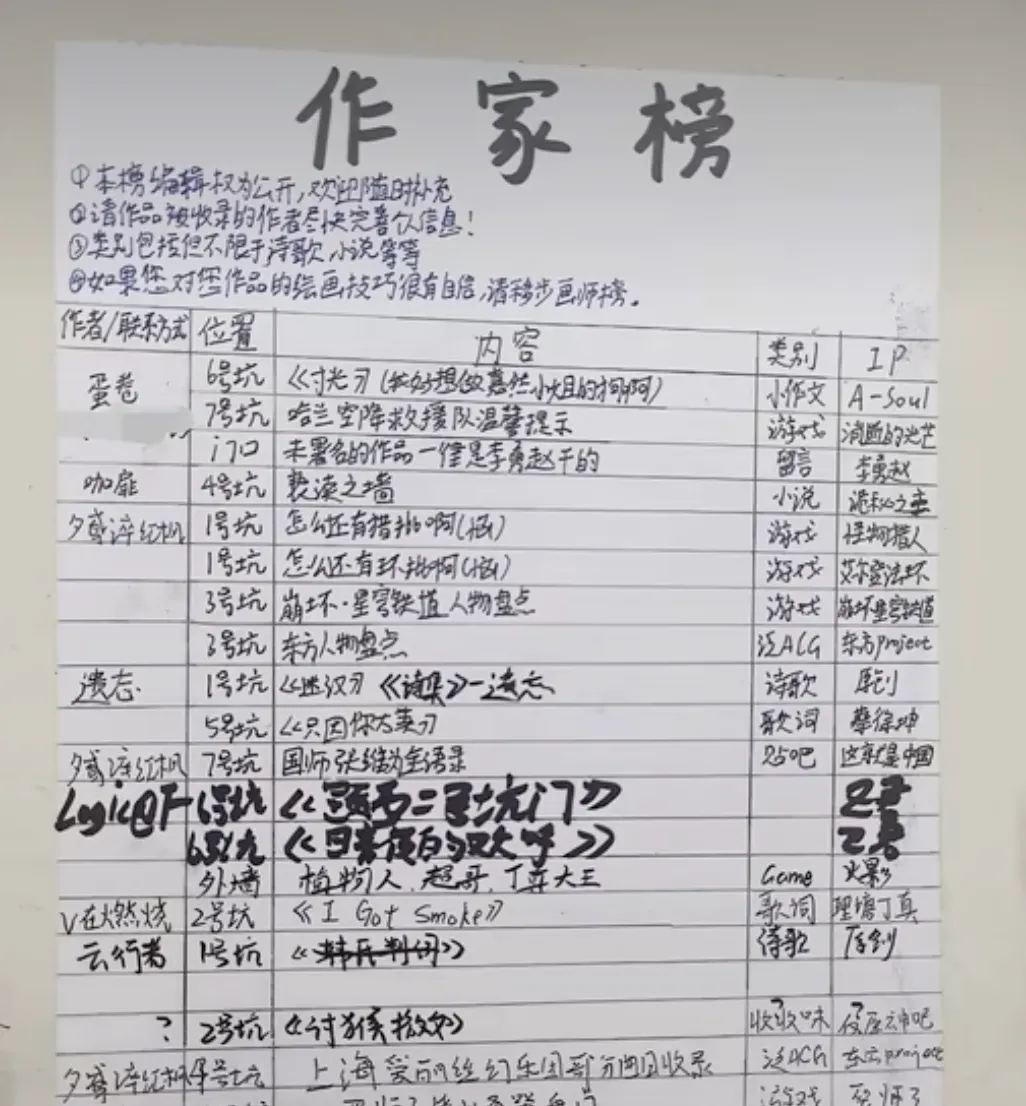 作家榜
①本榜编辑权为公开,欢迎随时补充
②请作品被收录的作者尽快完善个人信息!
③类别包括但不限于诗歌,小说等等
④如果您对您作品的绘画技巧很有自信,请移步画师榜。
作者/联系方式 位置 内容 类别 IP
蛋卷 6号坑 《寸光》(我好想做嘉然小姐的狗啊) 小作文 A-Soul
7号坑 哈兰空降救援队温馨提示 游戏 消逝的光芒
门口 未署名的作品一律是李勇赵干的 留言 李勇赵
咖扉 4号坑 亵渎之墙 小说 诡秘之主
夕鸢淬红枫 1号坑 怎么还有猎批啊(恼) 游戏 怪物猎人
1号坑 怎么还有环批啊(恼) 游戏 艾尔登法环
3号坑 崩坏·星穹铁道人物盘点 游戏 崩坏星穹铁道
3号坑 东方人物盘点 泛ACG 东方Project
遗志 1号坑 《迷汉》《诗集》—遗志 诗歌 原创
5号坑 《只因你太美》 歌词 蔡徐坤
夕鸢淬红枫 7号坑 国师张维为全语录 贴吧 这就是中国
Logic@F 6号坑 《题西二号坑门》
6号坑
外墙 植物人,超哥,丁真大王 Game 火影
V在燃烧 2号坑 《I Got Smoke》 歌词 理塘丁真
云行者 1号坑 诗歌 原创
? 2号坑 《讨猴檄文》
夕鸢淬红枫 4号坑 上海爱丽丝幻乐团 收录 泛ACG 东方project
游戏